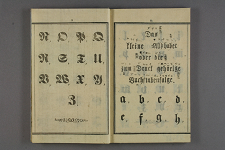 N O P Q
R S T U
V W X Y
Z
Das
kleine Alphabet
oder die
zum Druck gehörige
Buchstabenfolge.
a. b. c. d.
e. f. g. h.